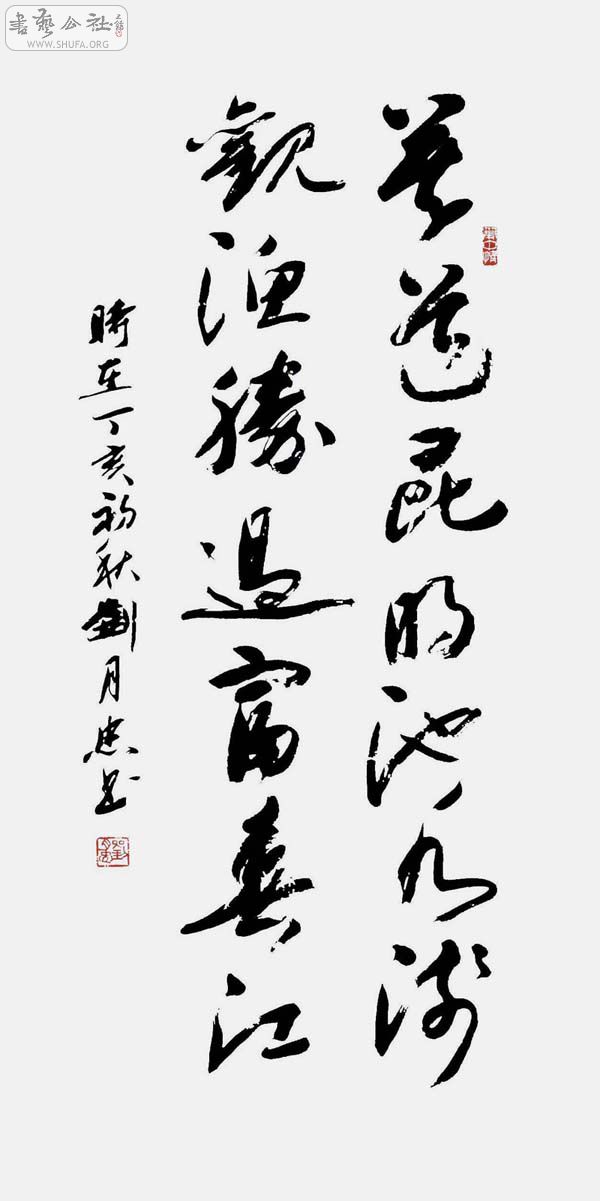 書藝公社
WWW.SHUFA.ORG
莫道昆明池水浅
觀渔勝過富春江
時在丁亥初秋劉月忠书